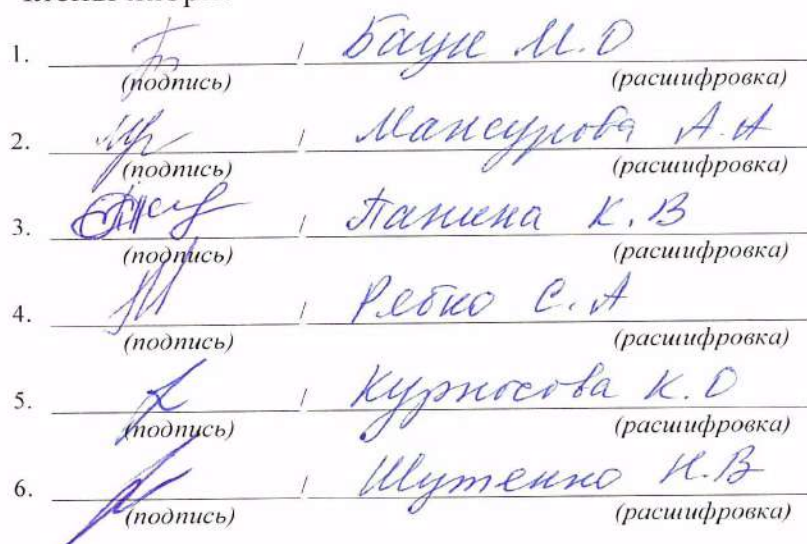 1. / Баук М.О
(подпись) (расшифровка)
2. / Мансурова А.А
(подпись) (расшифровка)
3. / Панина К.В
(подпись) (расшифровка)
4. / Рябко С.А
(подпись) (расшифровка)
5. / Курносова К.О
(подпись) (расшифровка)
6. / Шутенко Н.В
(подпись) (расшифровка)